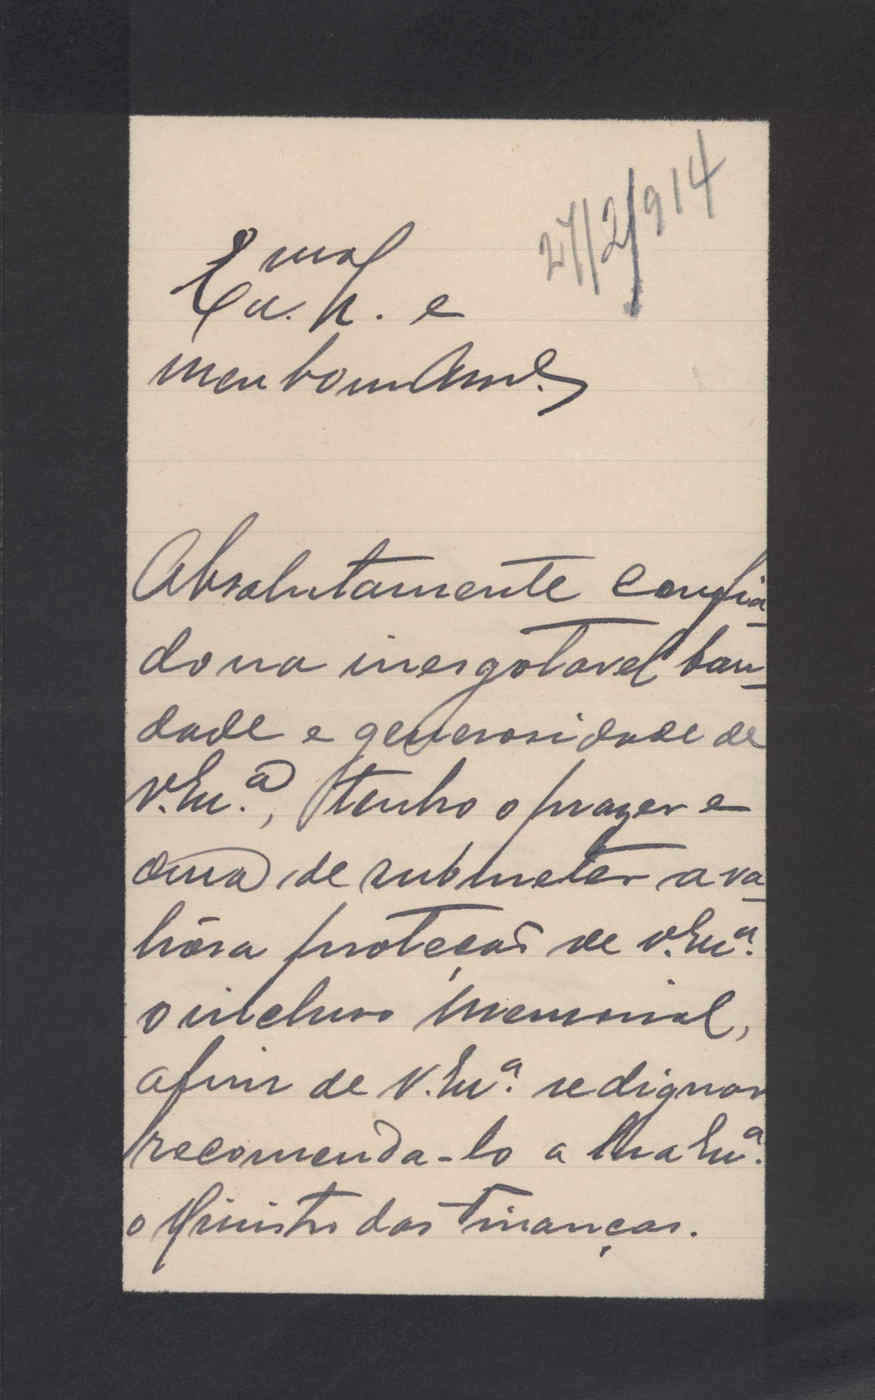 27/2/914
Exmo
Sr. e
meu bom Amo.
Absolutamente confia-
do na inesgotavel bon-
dade e generosidade de
V. Exa., tenho o prazer e
de submeter a va-
liosa proteção de V. Exa.
o incluso memorial,
afim de V. Exa. se dignar
recomenda-lo a Sua Exa.
o Ministro das Finanças.